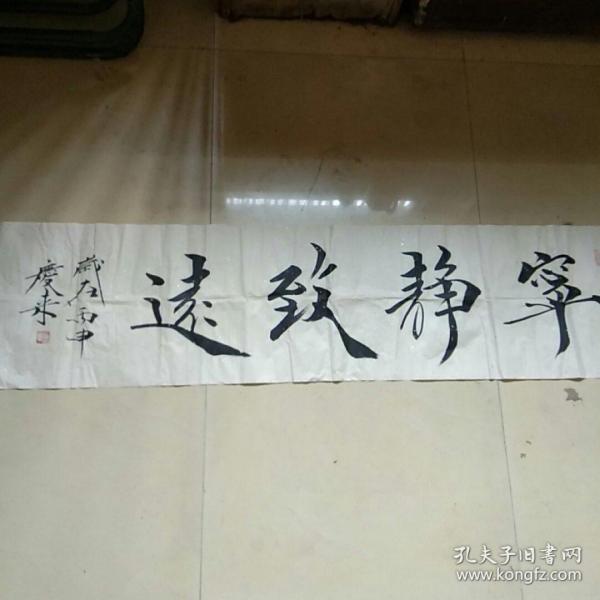 寧静致遠
歲在丙申
慶来
孔夫子旧書网
www.kongfz.com